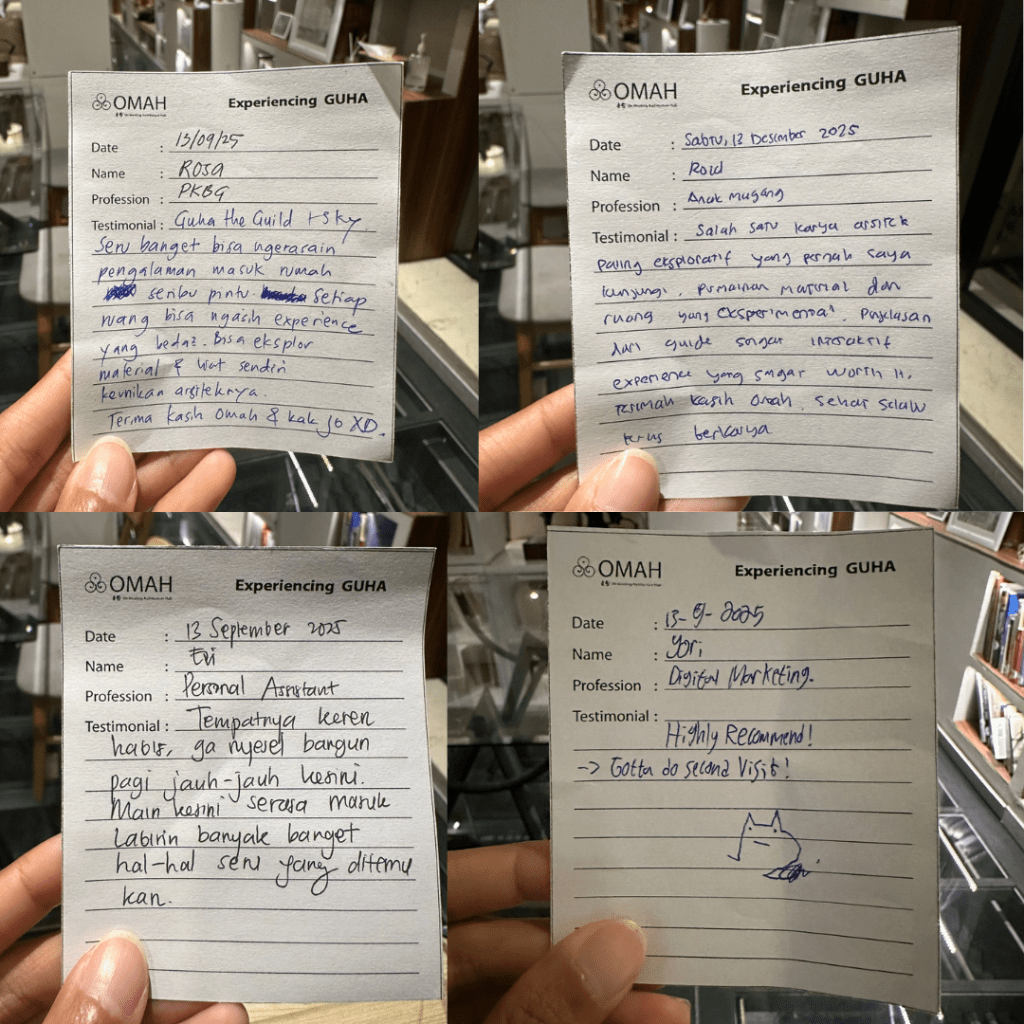 OMAH
Experiencing GUHA
Date : 13/09/25
Name : Rosa
Profession : PKBG
Testimonial : Guha the Guild + sky
Seru banget bisa ngerasain
pengalaman masuk rumah
seribu pintu. Setiap
ruang bisa ngasih experience
yang beda2. Bisa eksplor
material & liat sendiri
keunikan arsiteknya.
Terima kasih Omah & kak Jo XD.
OMAH
Experiencing GUHA
Date : Sabtu, 13 Desember 2025
Name :
Profession : Anak magang
Testimonial : Salah satu karya arsitek
paling eksploratif yang pernah saya
kunjungi. Permainan material dan
ruang yang eksperimental. Penjelasan
dari guide sangat interaktif
experience yang sangat worth it.
terimah kasih Omah. Sehat selalu
terus berkarya
OMAH
Experiencing GUHA
Date : 13 September 2025
Name : Evi
Profession : Personal Assistant
Testimonial : Tempatnya keren
habis, ga nyesel bangun
pagi jauh-jauh kesini.
Main kesini serasa masuk
Labirin banyak banget
hal-hal seru yang ditemu
kan.
OMAH
Experiencing GUHA
Date : 13-9-2025
Name : Yori
Profession : Digital Marketing.
Testimonial :
Highly Recommend!
-> Gotta do second Visit!